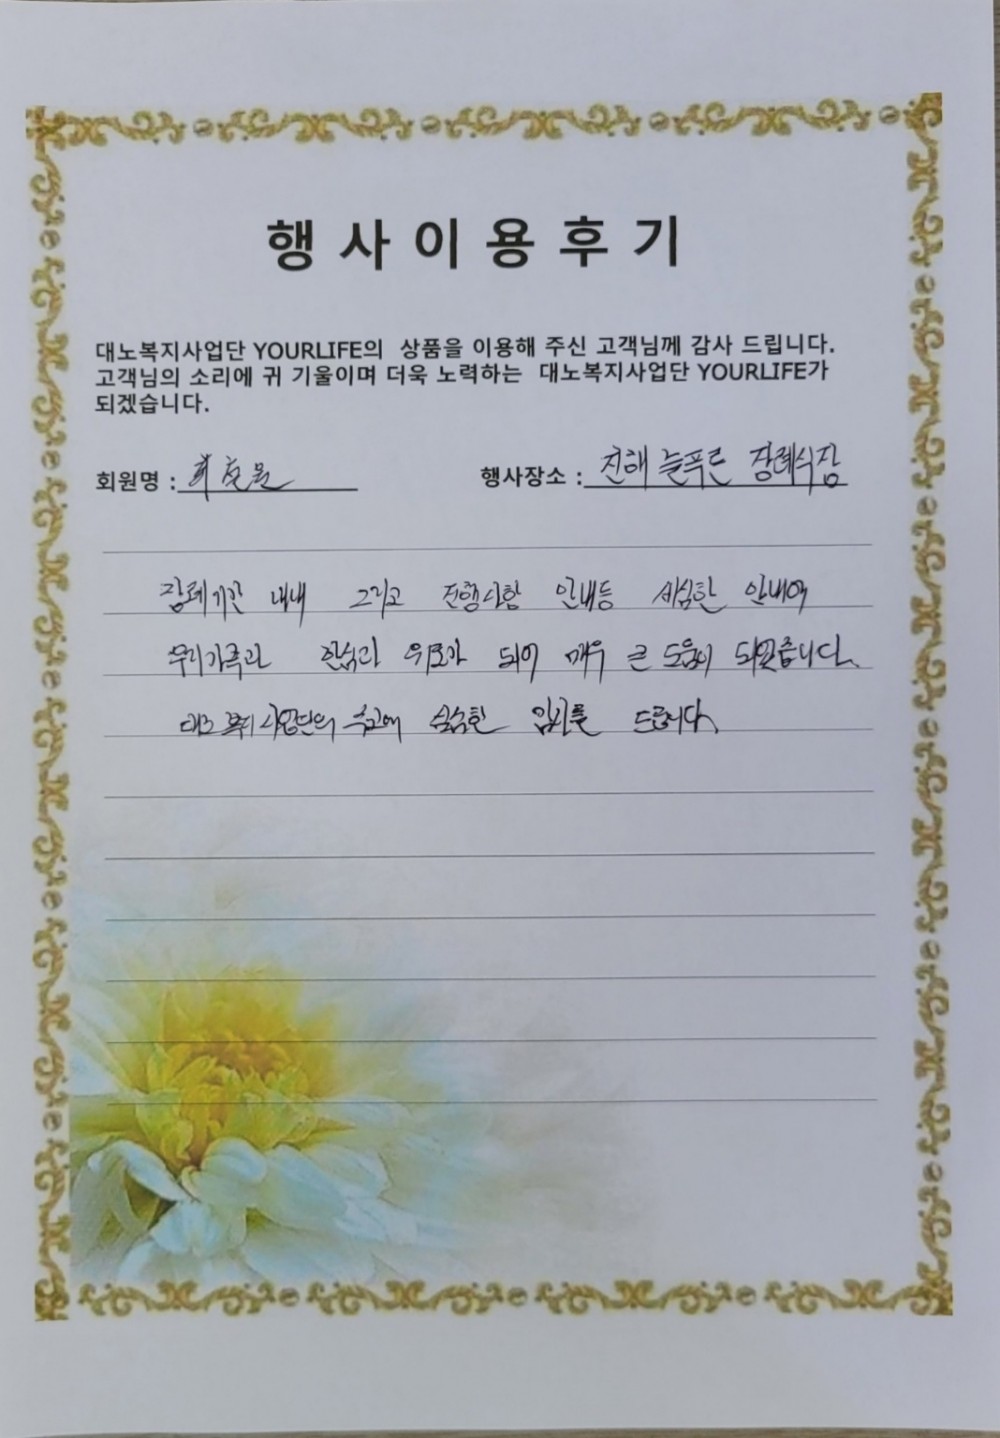 행사이용후기
대노복지사업단 YOURLIFE의 상품을 이용해 주신 고객님께 감사 드립니다.
고객님의 소리에 귀 기울이며 더욱 노력하는 대노복지사업단 YOURLIFE가
되겠습니다.
회원명 :
행사장소 : 진해 늘푸른 장례식장
장례기간 내내 그리고 진행사항 안내등 세심한 안내에
우리가족과 위로가 되어 매우 큰 도움이 되었습니다.
대노복지사업단의 수고에 심심한 드립니다.